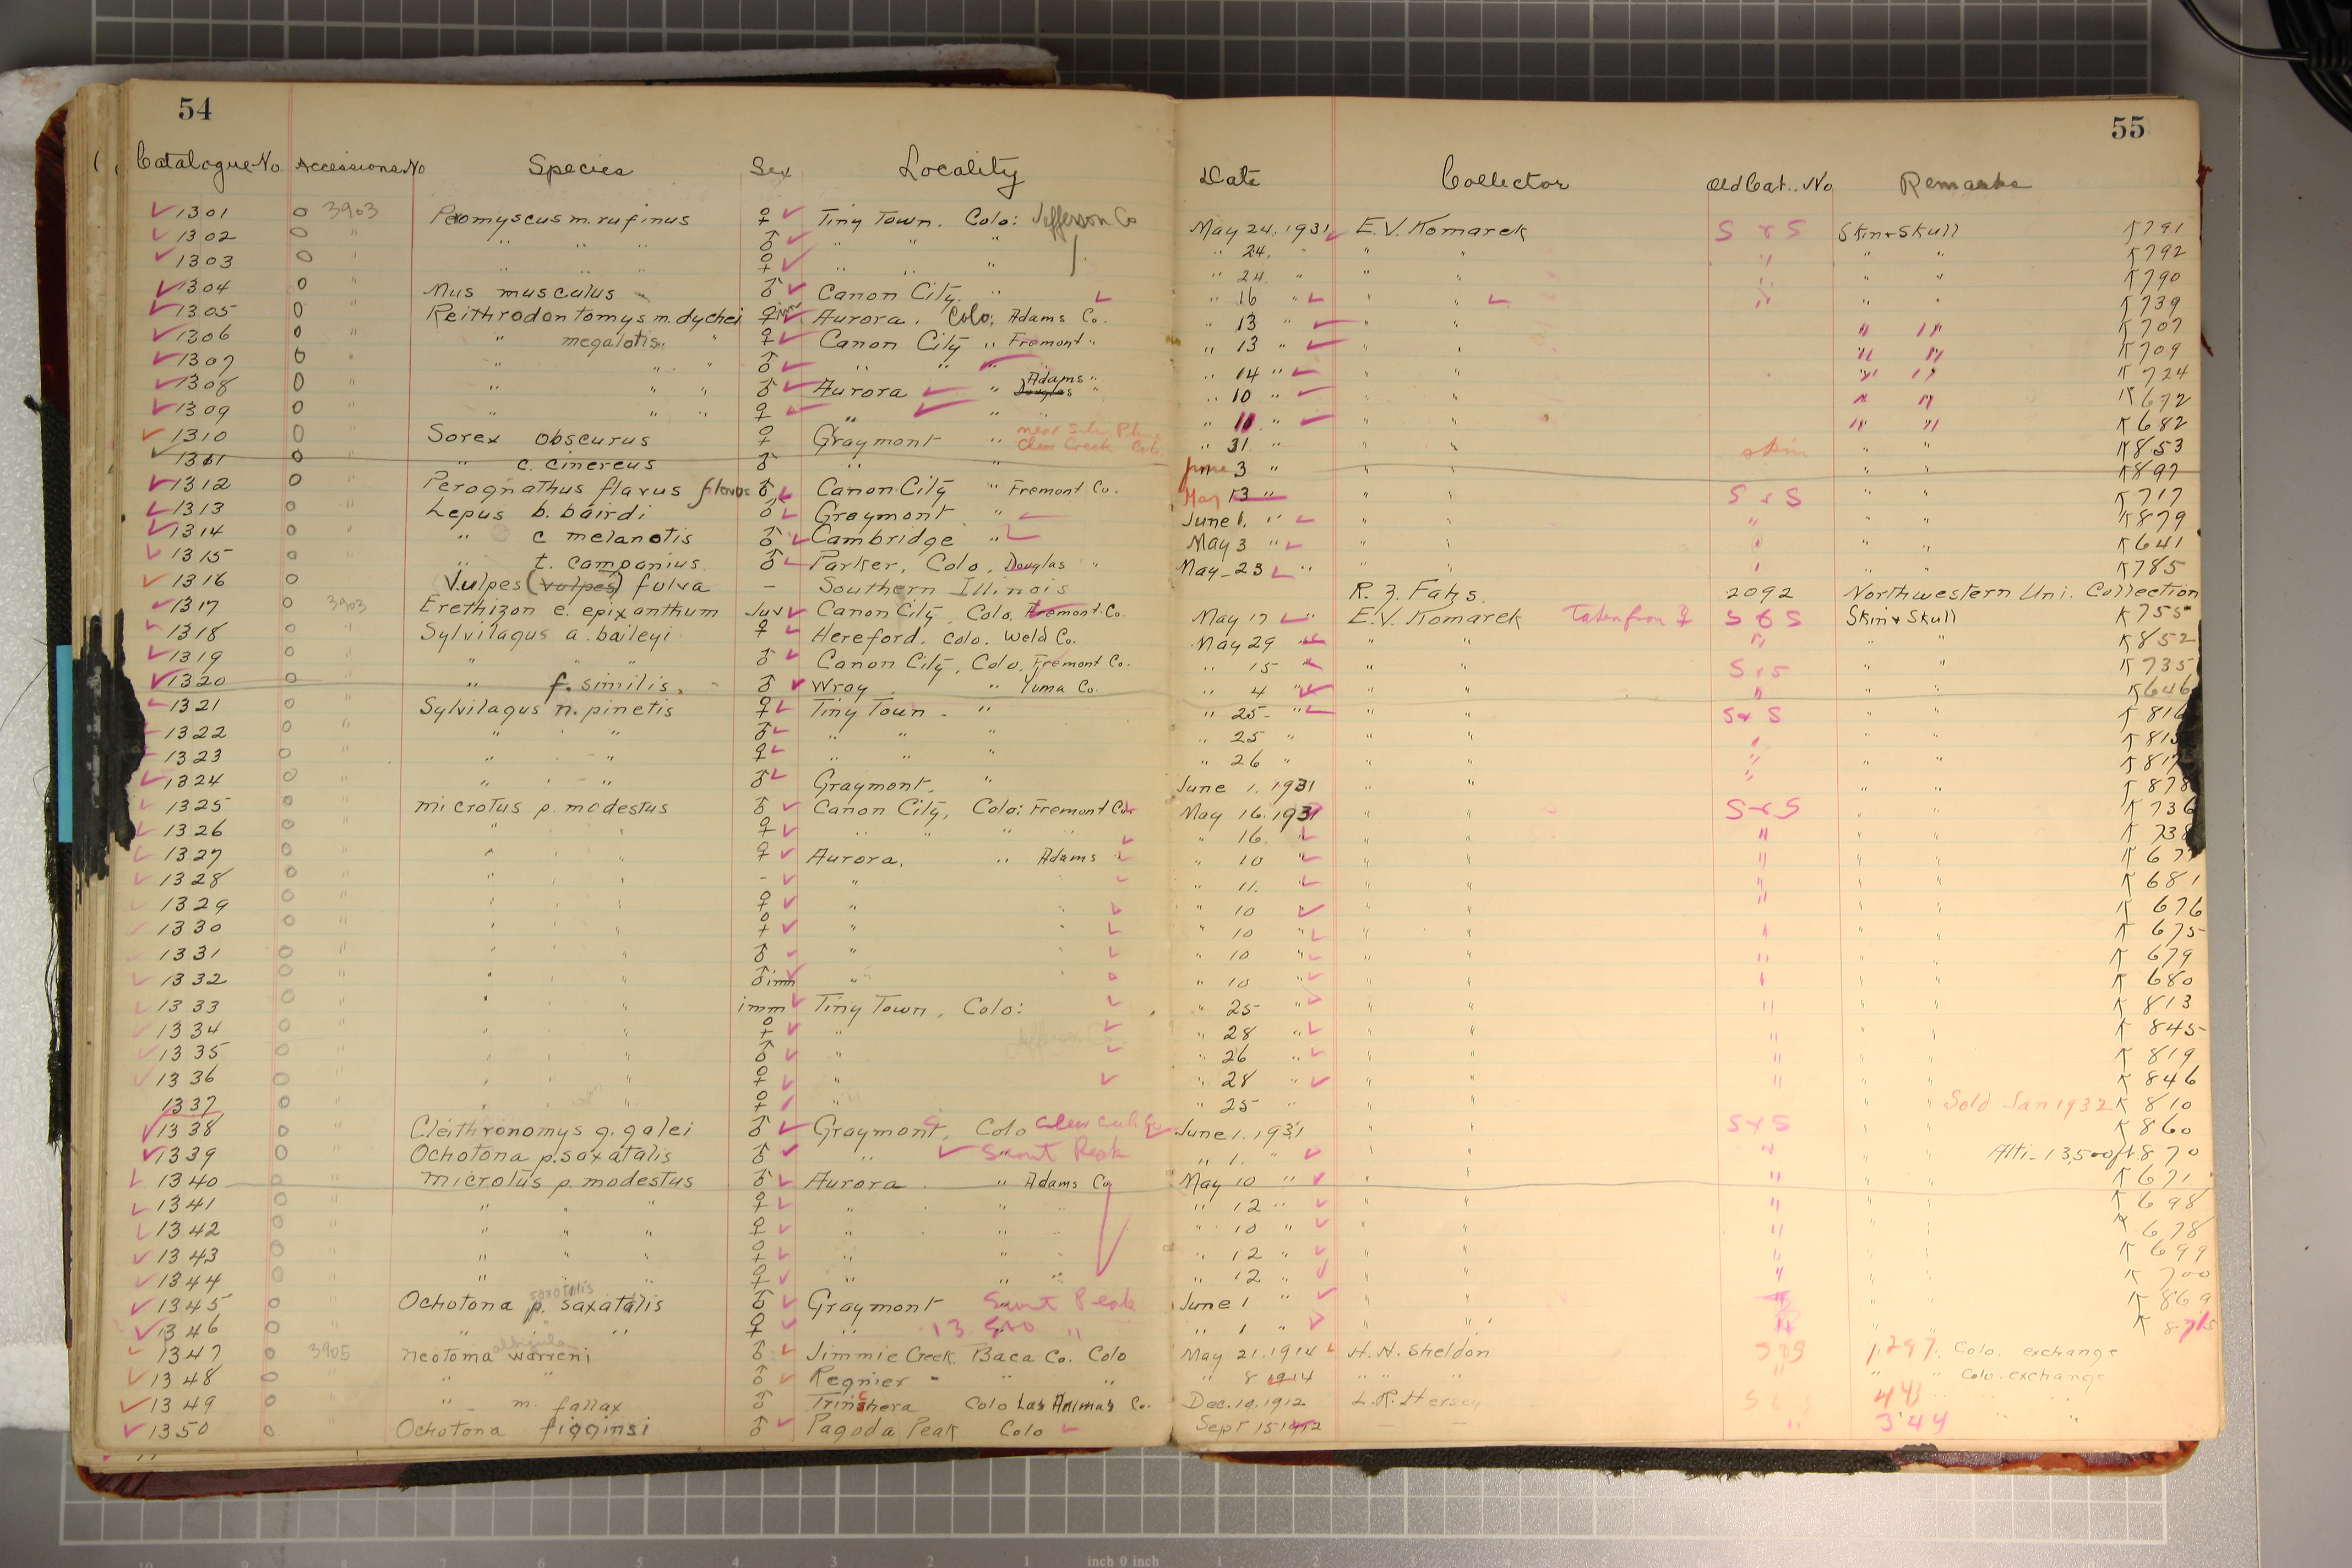 54
55
Catalogue No. Accessions No Species Sex Locality Date Collector Old Cat. No Remarks
1301 0 3903 Peromyscus m. rufinus ♀ Tiny Town. Colo: Jefferson Co May 24. 1931 E.V. Komarek S & S Skin & Skull K791
1302 0 " " " " ♂ " " " " 24. " " " " " " K792
1303 0 " " " " ♀ " " " " 24 " " " " " " K790
1304 0 " Mus musculus ♂ Canon City. " " 16 " " " " " " K739
1305 0 " Reithrodontomys m. dychei ♀ imm Aurora. Colo: Adams Co. " 13 " " " " " K707
1306 0 " " megalotis " " ♀ Canon City " Fremont " " 13 " " " " " K709
1307 0 " " " " ♂ " " " " 14 " " " " " K724
1308 0 " " " " ♂ Aurora " Adams " Douglas " " 10 " " " " " K672
1309 0 " " " " ♀ " " " " 11 " " " " " K682
1310 0 " Sorex obscurus ♀ Graymont " near Silver Plume Clear Creek Colo. " 31 " " " " " K853
1311 0 " " c. cinereus ♂ " " June 3 " " " skin " " K897
1312 0 " Perognathus flavus flavus ♂ Canon City " Fremont Co. May 13 " " " S & S " " K717
1313 0 " Lepus b. bairdi ♂ Graymont " June 1. " " " " " " K879
1314 0 " " c melanotis ♂ Cambridge " May 3 " " " " " " K641
1315 0 " " t. campanius ♂ Parker, Colo, Douglas " May 23 " " " " " " K785
1316 0 Vulpes (vulpes) fulva – Southern Illinois R. Z. Fahs. 2092 Northwestern Uni. Collection
1317 0 3903 Erethizon e. epixanthum Juv Canon City, Colo, Fremont Co. May 17 " E.V. Komarek Taken from ♀ S & S Skin & Skull K755
1318 0 " Sylvilagus a. baileyi ♀ Hereford, colo. Weld Co. May 29 " " " " " " K852
1319 0 " " " " ♂ Canon City, Colo, Fremont Co. " 15 " " " S & S " " K735
1320 0 " " f. similis. ♂ Wray " Yuma Co. " 4 " " " " " " K646
1321 0 " Sylvilagus n. pinetis ♀ Tiny Town - " " 25- " " " S & S " " K816
1322 0 " " " " ♂ " " " " 25 " " " " " " K
1323 0 " " " " ♀ " " " " 26 " " " " " " K817
1324 0 " " " " ♂ Graymont. " June 1. 1931 " " " " " K878
1325 0 " Microtus p. modestus ♂ Canon City, Colo: Fremont Co. May 16. 1931 " " S & S " " K736
1326 0 " " " " ♀ " " " " " 16. " " " " " " K738
1327 0 " " " " ♀ Aurora. " Adams " " 10 " " " " " " K 67
1328 0 " " " " - " " " 11. " " " " " " K 681
1329 0 " " " " ♀ " " " 10 " " " " " K 676
1330 0 " " " " ♀ " " " 10 " " " " " " K 675
1331 0 " " " " ♂ " " " 10 " " " " " " K 679
1332 0 " " " " ♂ imm " " " 10 " " " " " " K 680
1333 0 " " " " imm Tiny Town, Colo: " 25 " " " " " " K 813
1334 0 " " " " ♀ " Jefferson Co. " 28 " " " " " " K 845
1335 0 " " " " ♂ " " 26 " " " " " " K 819
1336 0 " " " " ♀ " " 28 " " " " " " K 846
1337 0 " " " " ♀ " " 25 " " " Sold Jan 1932 K 810
1338 0 " Cleithronomys g. galei ♂ Graymont, Colo Clear Creek Co June 1. 1931 " " S & S " " K 860
1339 0 " Ochotona p. saxatalis ♂ " " 1. " " " " " " Alti- 13,500 ft. 870
1340 0 " Microtus p. modestus ♂ Aurora " Adams Co May 10 " " " " " " K 671
1341 0 " " " " ♀ " " " " 12 " " " " " " K 698
1342 0 " " " " ♀ " " " " 10 " " " " " " K 678
1343 0 " " " " ♀ " " " " 12 " " " " " " K 699
1344 0 " " " " ♀ " " " " 12 " " " " " " K 700
1345 0 " Ochotona p. saxatalis saxatilis ♂ Graymont Peak June 1 " " " " " K 869
1346 0 " " " " ♀ " " " 1 " " " " " K
1347 0 3905 Neotoma warreni albigula ♂ Jimmie Creek, Baca Co. Colo May 21. 1914 H. H. Sheldon 1297. Colo. exchange
1348 0 " " " ♂ Regnier - " " " 8 1914 " " " " " Colo. exchange
1349 0 " " m. fallax ♂ Trinchera Colo Las Animas Co. Dec. 10. 1912 L. R. Hersey 443 " "
1350 0 Ochotona figginsi ♂ Pagoda Peak Colo Sept 15 1912 – – " 344 " "